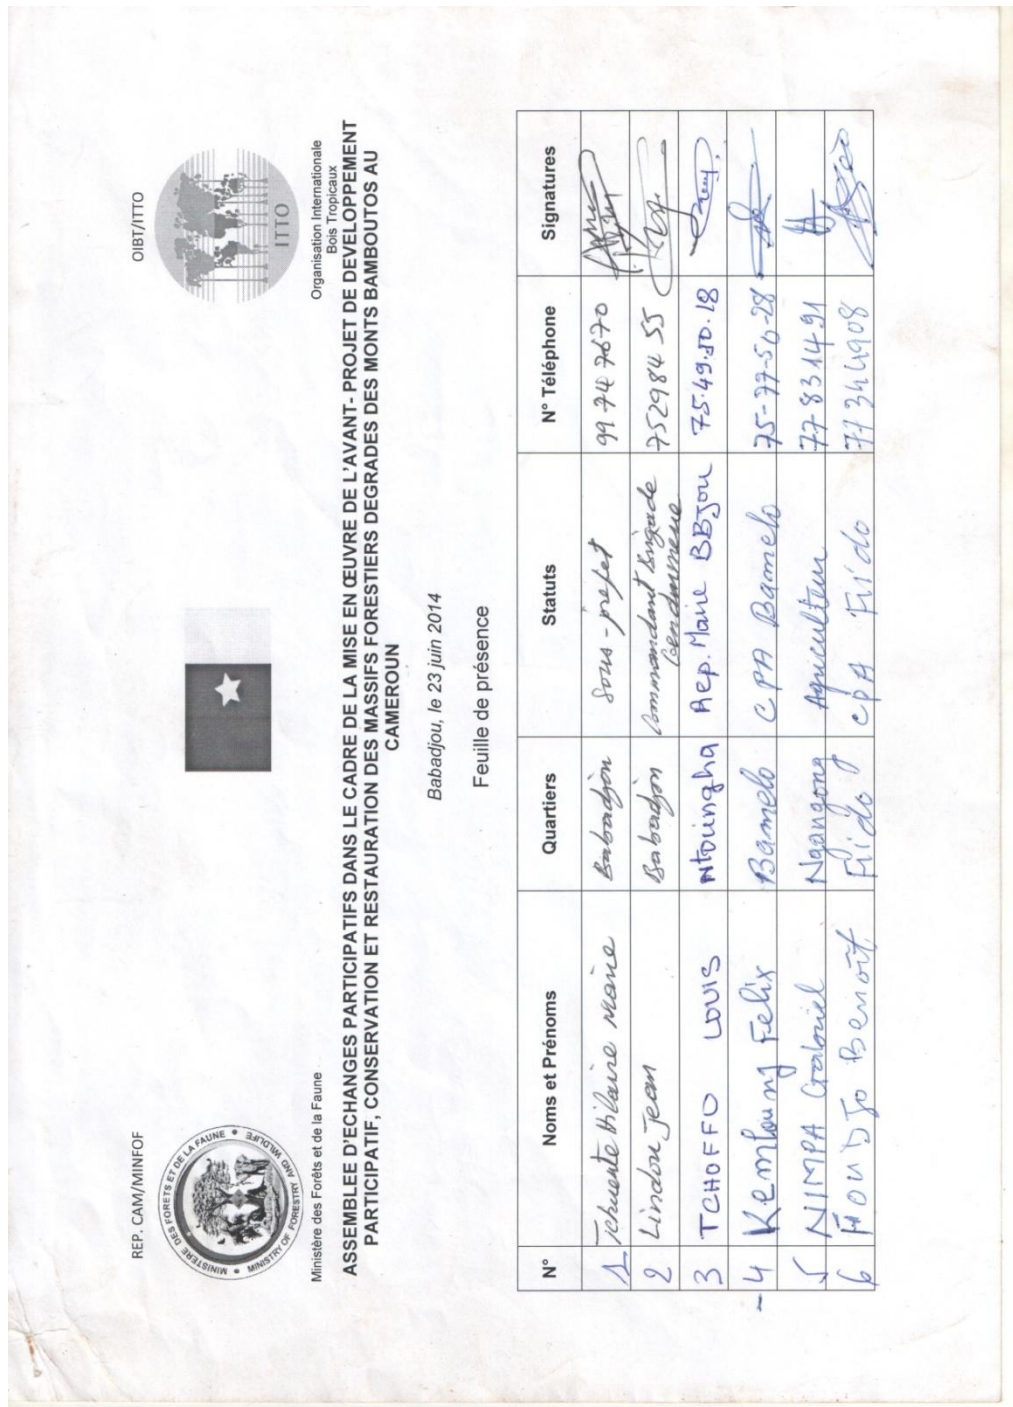 REP. CAM/MINFOF
OIBT/ITTO
MINISTERE DES FORETS ET DE LA FAUNE
MINISTRY OF FORESTRY AND WILDLIFE
ITTO
Ministère des Forêts et de la Faune
Organisation Internationale
Bois Tropicaux
ASSEMBLEE D'ECHANGES PARTICIPATIFS DANS LE CADRE DE LA MISE EN ŒUVRE DE L'AVANT- PROJET DE DEVELOPPEMENT
PARTICIPATIF, CONSERVATION ET RESTAURATION DES MASSIFS FORESTIERS DEGRADES DES MONTS BAMBOUTOS AU
CAMEROUN
Babadjou, le 23 juin 2014
Feuille de présence
N° Noms et Prénoms Quartiers Statuts N° Téléphone Signatures
1 Tchuente Hilaire Marie Babadjou Sous-préfet 99 74 76 70
2 Lindou Jean Babadjou Commandant Brigade Gendarmerie 75 29 84 55
3 TCHOFFO LOUIS Ntoungha Rep. Maire BBJou 75.49.50.18
- 4 Felix Bamelo CPA Bamelo 75-77-50-28
5 NIMPA Gabriel Ngangong Agriculteur 77 83 14 91
6 Benoît Fiido CPA Fiido 77 34 49 08